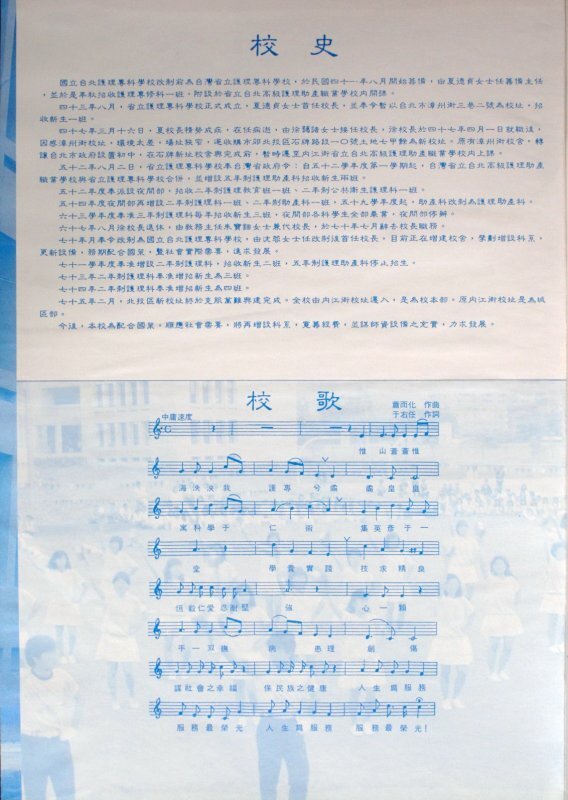 校史
國立台北護理專科學校改制前為台灣省立護理專科學校，於民國四十一年八月開始籌備，由夏德貞女士任籌備主任
，並於是年秋招收護理專修科一班，附設於省立台北高級護理助產職業學校內開課。
四十三年八月，省立護理專科學校正式成立，夏德貞女士首任校長，並奉令暫以台北市漳州街三巷二號為校址，招
收新生一班。
四十七年三月十六日，夏校長積勞成疾，在任病逝，由徐藹諸女士接任校長，徐校長於四十七年四月一日就職後，
因感漳州街校址，環境太差，場址狹窄，遂收購市郊北投區石牌路段一〇號土地七甲餘為新校址，原有漳州街校舍，轉
讓台北市政府設置初中，在石牌新址校舍興建完成前，暫時遷至內江街省立台北高級護理助產職業學校內上課。
五十二年八月二日，省立護理專科學校奉台灣省政府令：自五十二學年度第一學期起，台灣省立台北高級護理助產
職業學校與省立護理專科學校合併，並增設五年制護理助產科招收新生兩班。
五十二年度奉派設夜間部，招收二年制護理教育班一班、二年制公共衛生護理科一班。
五十四年度夜間部再增設二年制護理科一班、二年制助產科一班，五十九學年度起，助產科改制為護理助產科。
六十三學年度奉准三年制護理科每年招收新生三班，夜間部各科學生全部畢業，夜間部停辦。
六十七年八月徐校長退休，由教務主任朱寶鈿女士兼代校長，於七十年七月辭去校長職務。
七十年月奉令改制為國立台北護理專科學校，由沈蓉女士任改制後首任校長。目前正在增建校舍，擘劃增設科系，
更新設備，務期配合國策，暨社會實際需要，遂求發展。
七十一學年度奉准增設二年制護理科，招收新生二班，五年制護理助產科停止招生。
七十三年二年制護理科奉准增招新生為三班。
七十四年二年制護理科奉准增招新生為四班。
七十五年二月，北投區新校址終於克服萬難興建完成。全校由內江街校址遷入，是為校本部，原內江街校址是為城
區部。
今後，本校為配合國策，順應社會需要，將再增設科系，寬籌經費，並謀師資設備之充實，力求發展。
校歌
蕭而化 作曲
中庸速度
于右任 作詞
惟 山蒼蒼惟
海泱泱我 護專 兮 矞 矞皇皇
寓科學于 仁 術 集英彥于一
堂 學貴實踐 技求精良
恆毅仁愛忍耐堅 強 心一顆
手一双撫 病 患理 創 傷
謀社會之幸福 保民族之健康 人生為服務
服務最榮光 人生為服務 服務最榮光！